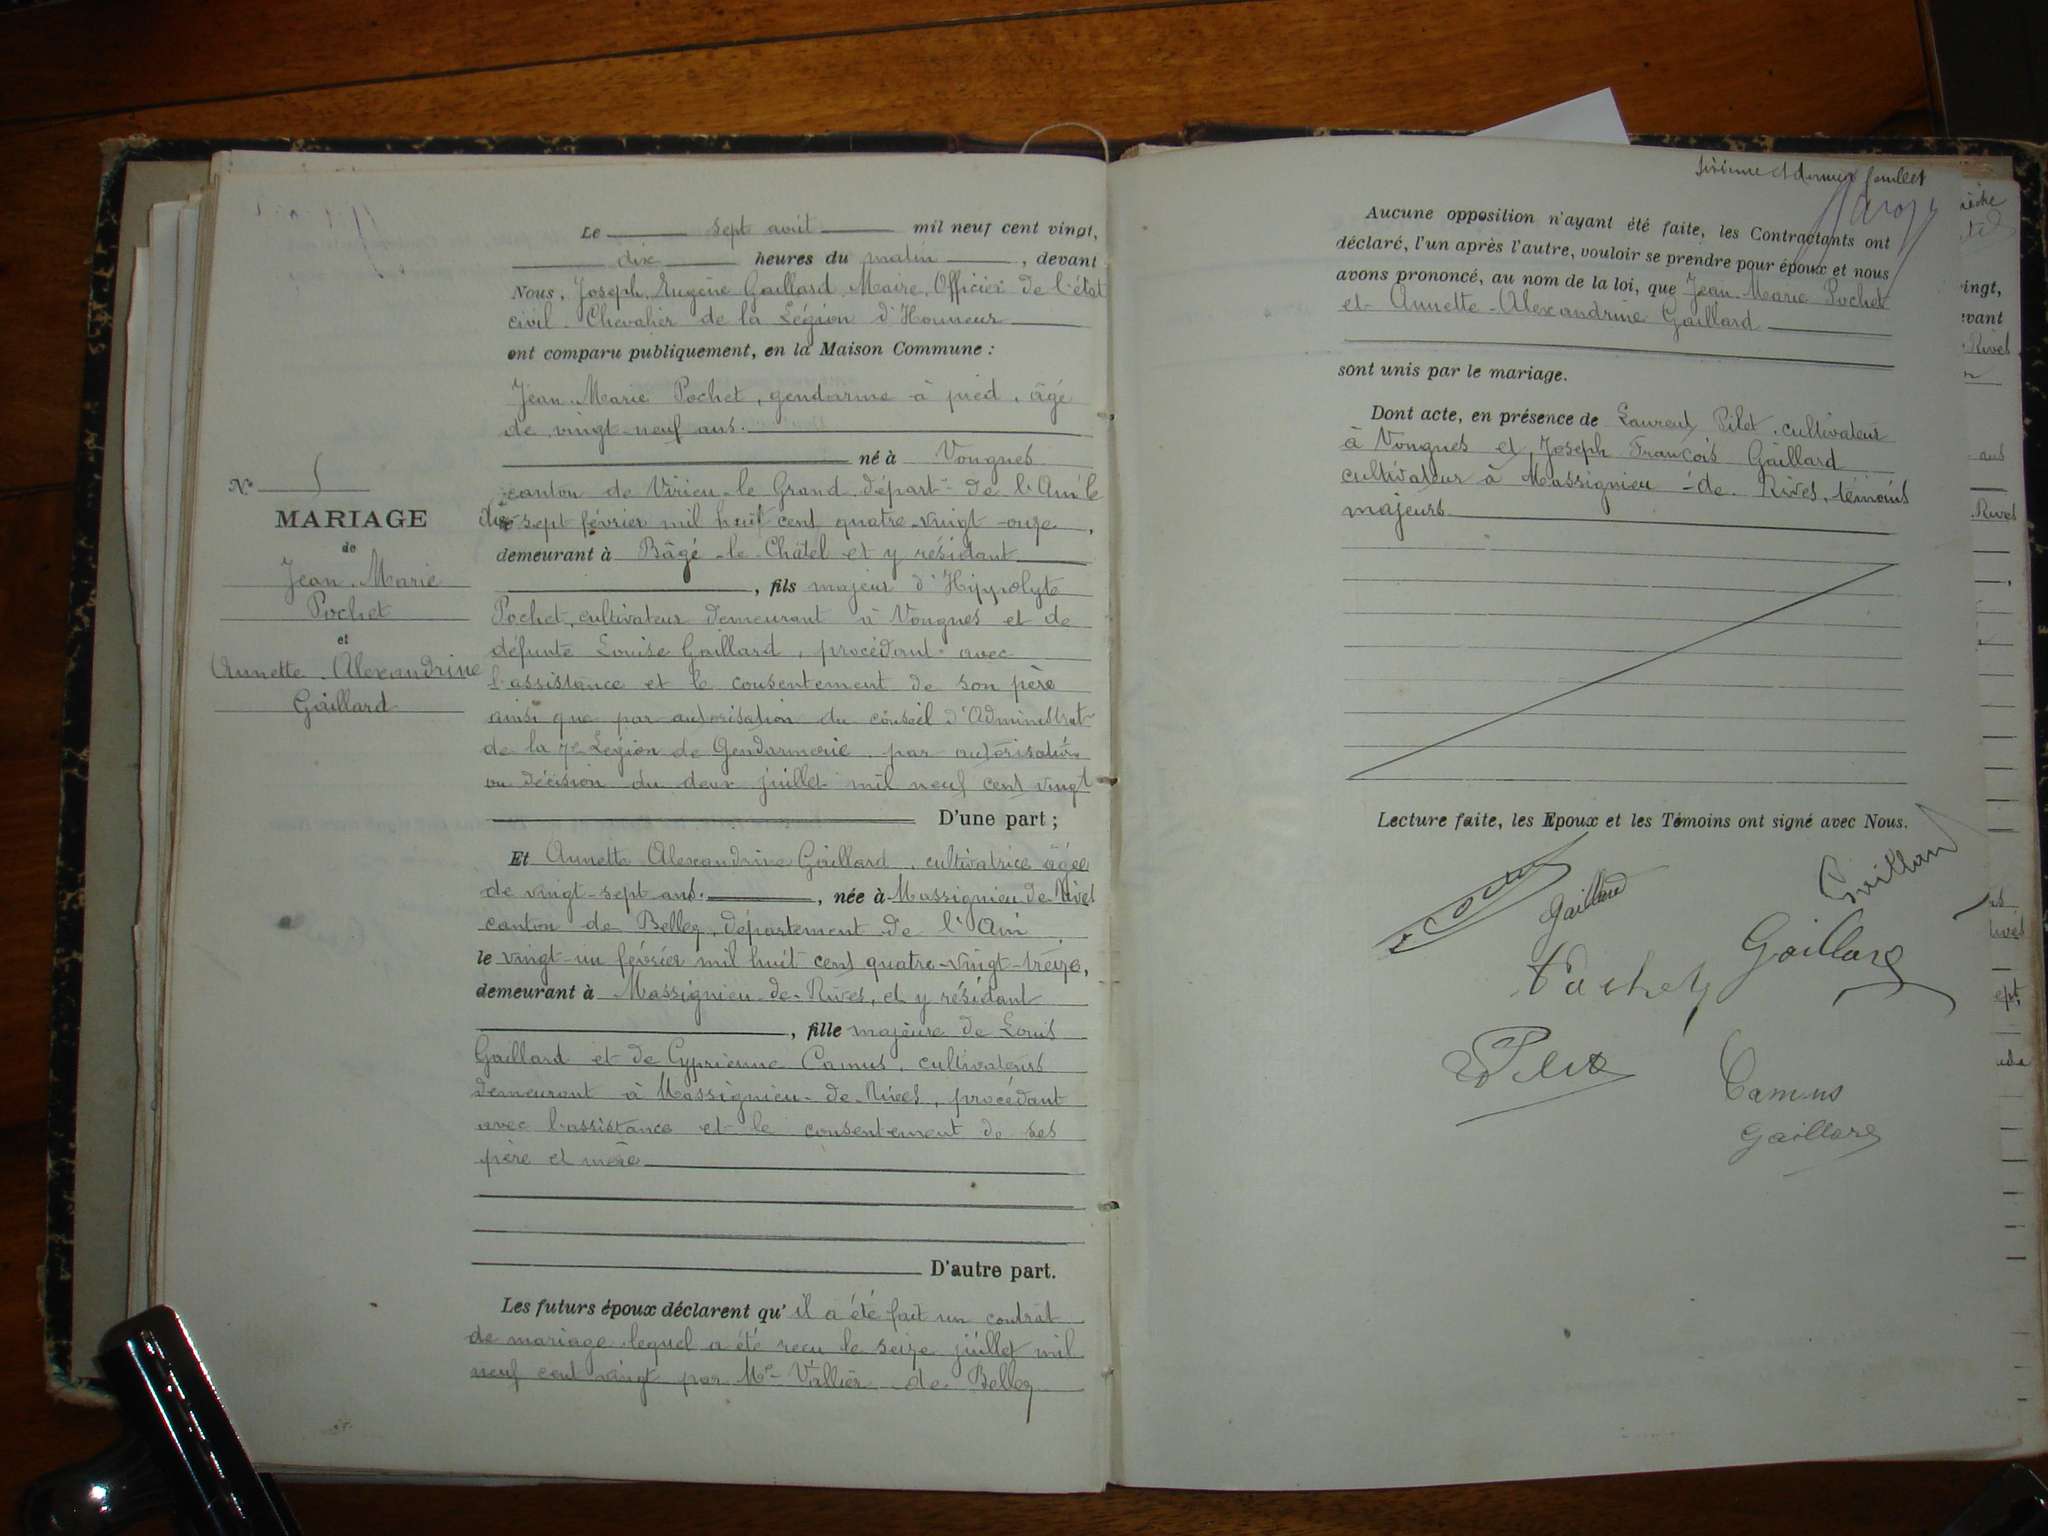 Le sept août mil neuf cent vingt,
dix heures du matin, devant
Nous, Joseph, Eugène Gaillard, Maire, Officier de l'état
civil, Chevalier de la Légion d'Honneur
ont comparu publiquement, en la Maison Commune :
Jean-Marie Pochet, gendarme à pied, âgé
de vingt-neuf ans.
né à Vongnes
canton de Virieu-le-Grand, départ.t de l'Ain le
dix-sept février mil huit cent quatre-vingt-onze,
demeurant à Bâgé-le-Châtel et y résidant
, fils majeur d'Hippolyte
Pochet, cultivateur demeurant à Vongnes et de
défunte Louise Gaillard, procédant avec
l'assistance et le consentement de son père
ainsi que par autorisation du conseil d'Administrat.
de la 7e Légion de Gendarmerie, par autorisation
ou décision du deux juillet mil neuf cent vingt
D'une part ;
Nº 5
MARIAGE
de
Jean-Marie
Pochet
et
Annette-Alexandrine
Gaillard
Et Annette Alexandrine Gaillard, cultivatrice âgée
de vingt-sept ans., née à Massignieu de Rives
canton de Belley, département de l'Ain,
le vingt-un février mil huit cent quatre-vingt-treize,
demeurant à Massignieu-de-Rives, et y résidant
, fille majeure de Louis
Gaillard et de Cyprienne Camus, cultivateurs
demeurant à Massignieu-de-Rives, procédant
avec l'assistance et le consentement de ses
père et mère
D'autre part.
Les futurs époux déclarent qu'il a été fait un contrat
de mariage lequel a été reçu le seize juillet mil
neuf cent vingt par Me Vallier de Belley
et dernier feuillet
Aucune opposition n'ayant été faite, les Contractants ont
déclaré, l'un après l'autre, vouloir se prendre pour époux et nous
avons prononcé, au nom de la loi, que Jean-Marie Pochet
et Annette-Alexandrine Gaillard
sont unis par le mariage.
Dont acte, en présence de Laurent Pilet, cultivateur
à Vongnes et Joseph François Gaillard
cultivateur à Massignieu-de-Rives, témoins
majeurs
Lecture faite, les Epoux et les Témoins ont signé avec Nous.
Gaillard
Gaillard
Pochet
Gaillard
Pilet
Camus
Gaillard
vingt,
evant
Rives
ans
Rives
ept,